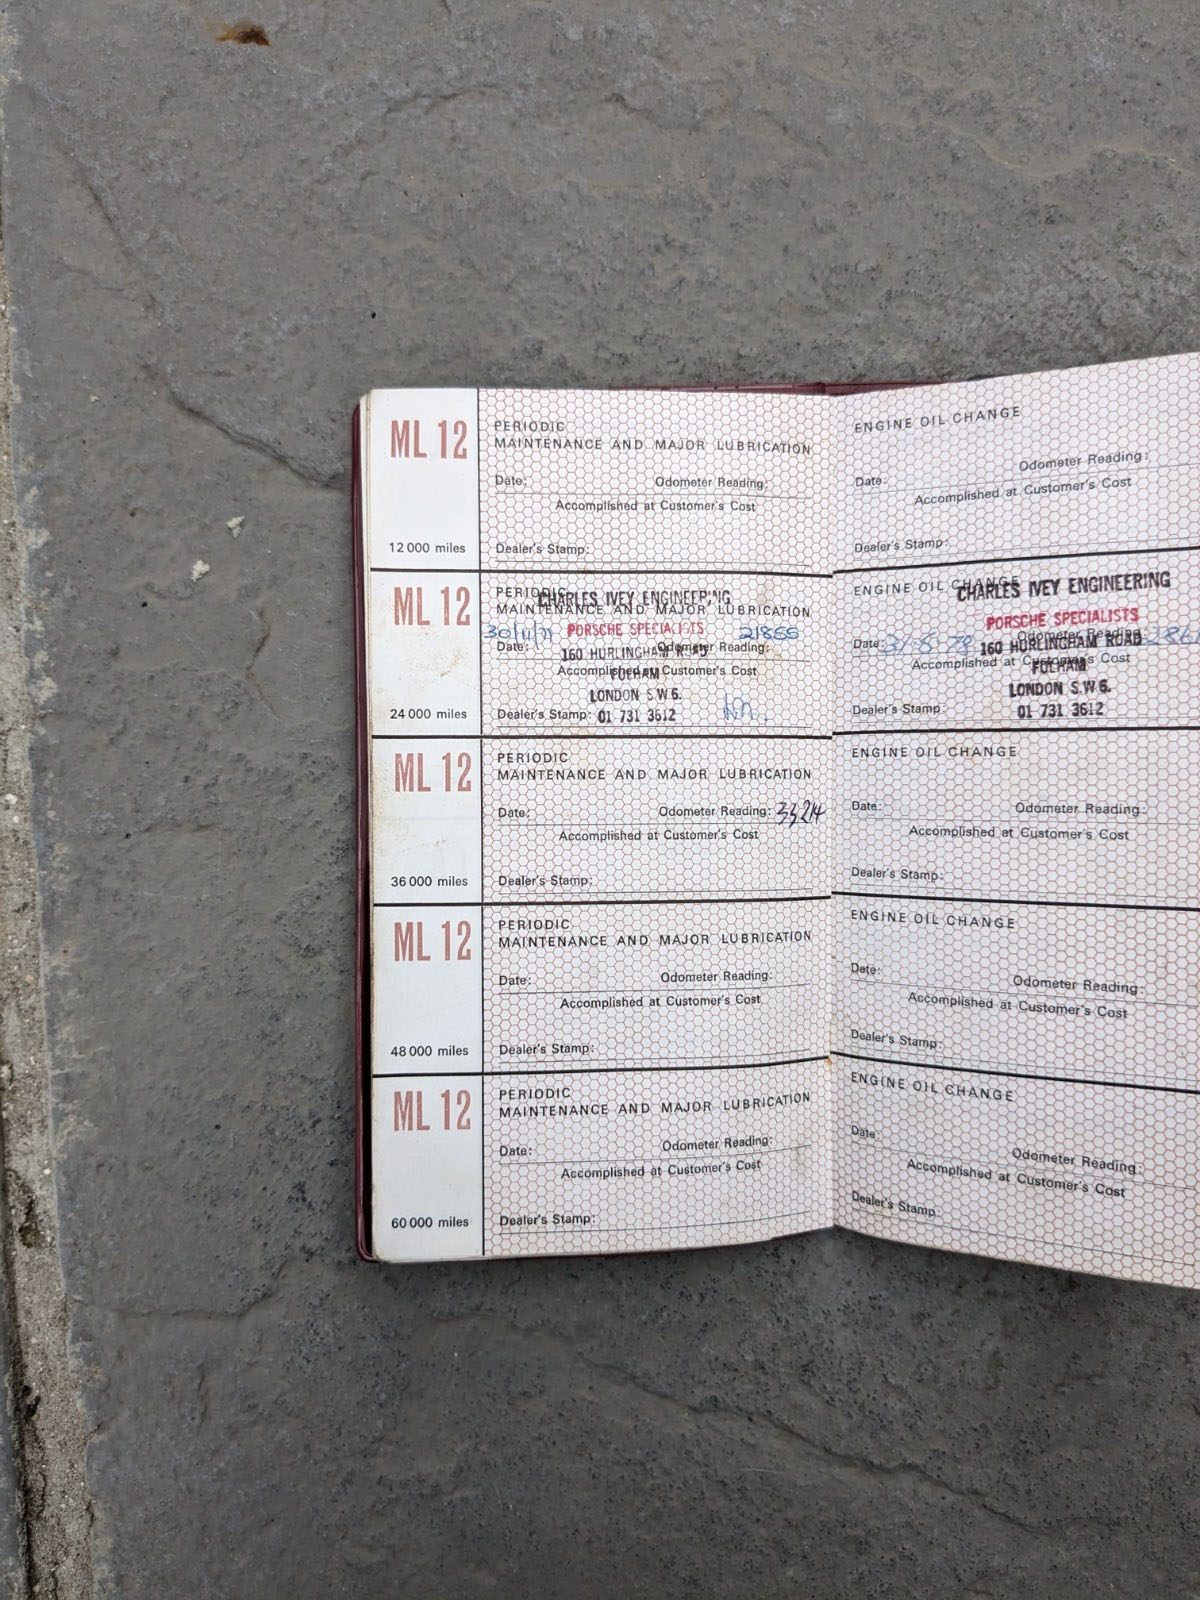 ML 12
PERIODIC
MAINTENANCE AND MAJOR LUBRICATION
Date: Odometer Reading:
Accomplished at Customer's Cost
12 000 miles
Dealer's Stamp:
ML 12
PERIODIC
MAINTENANCE AND MAJOR LUBRICATION
CHARLES IVEY ENGINEERING
PORSCHE SPECIALISTS
21855
Date: Odometer Reading:
160 HURLINGHAM ROAD
Accomplished at Customer's Cost
FULHAM
LONDON S.W6.
24 000 miles
Dealer's Stamp:
01 731 3612
ML 12
PERIODIC
MAINTENANCE AND MAJOR LUBRICATION
Date: Odometer Reading: 33214
Accomplished at Customer's Cost
36 000 miles
Dealer's Stamp:
ML 12
PERIODIC
MAINTENANCE AND MAJOR LUBRICATION
Date: Odometer Reading:
Accomplished at Customer's Cost
48 000 miles
Dealer's Stamp:
ML 12
PERIODIC
MAINTENANCE AND MAJOR LUBRICATION
Date: Odometer Reading:
Accomplished at Customer's Cost
60 000 miles
Dealer's Stamp:
ENGINE OIL CHANGE
Date: Odometer Reading:
Accomplished at Customer's Cost
Dealer's Stamp:
ENGINE OIL CHANGE
CHARLES IVEY ENGINEERING
PORSCHE SPECIALISTS
Date: 31-8-78 Odometer Reading
160 HURLINGHAM ROAD
Accomplished at Customer's Cost
FULHAM
LONDON S.W6.
Dealer's Stamp:
01 731 3612
ENGINE OIL CHANGE
Date: Odometer Reading:
Accomplished at Customer's Cost
Dealer's Stamp:
ENGINE OIL CHANGE
Date: Odometer Reading:
Accomplished at Customer's Cost
Dealer's Stamp:
ENGINE OIL CHANGE
Date: Odometer Reading:
Accomplished at Customer's Cost
Dealer's Stamp: